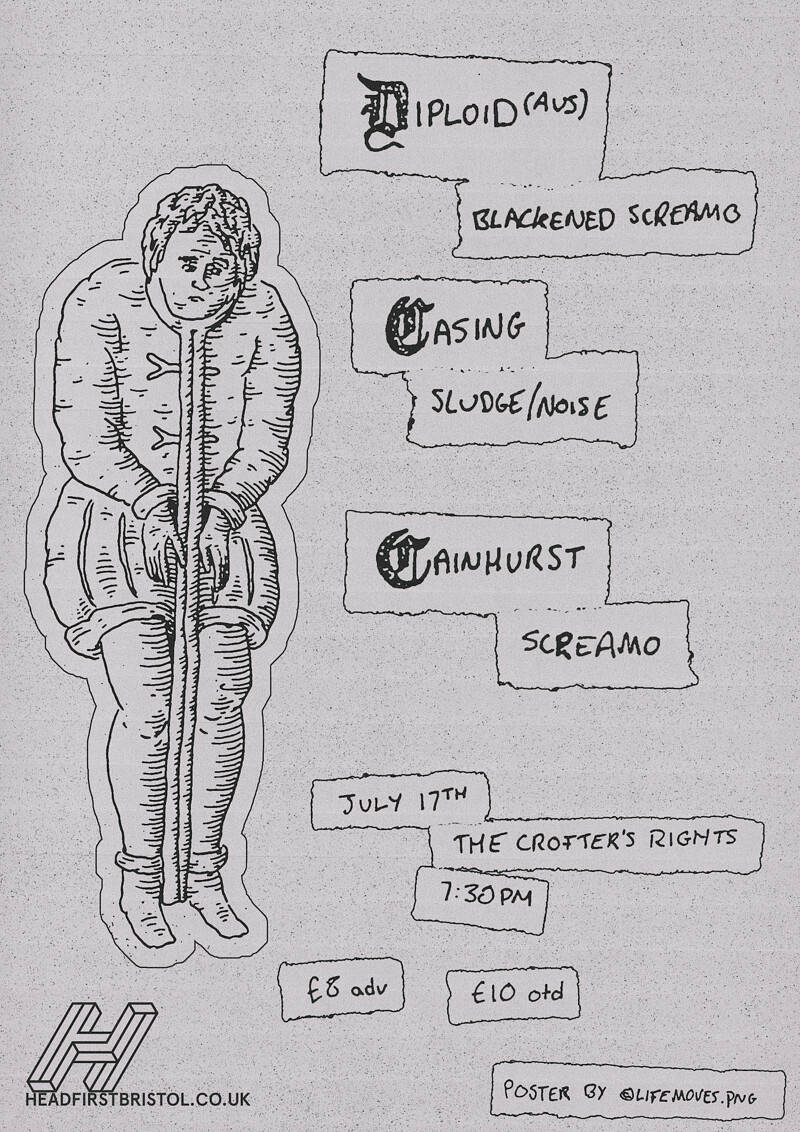 DIPLOID (AUS)
BLACKENED SCREAMO
CASING
SLUDGE/NOISE
CAINHURST
SCREAMO
JULY 17TH
THE CROFTER'S RIGHTS
7:30PM
£8 adv
£10 otd
HEADFIRSTBRISTOL.CO.UK
POSTER BY @LIFEMOVES.PNG